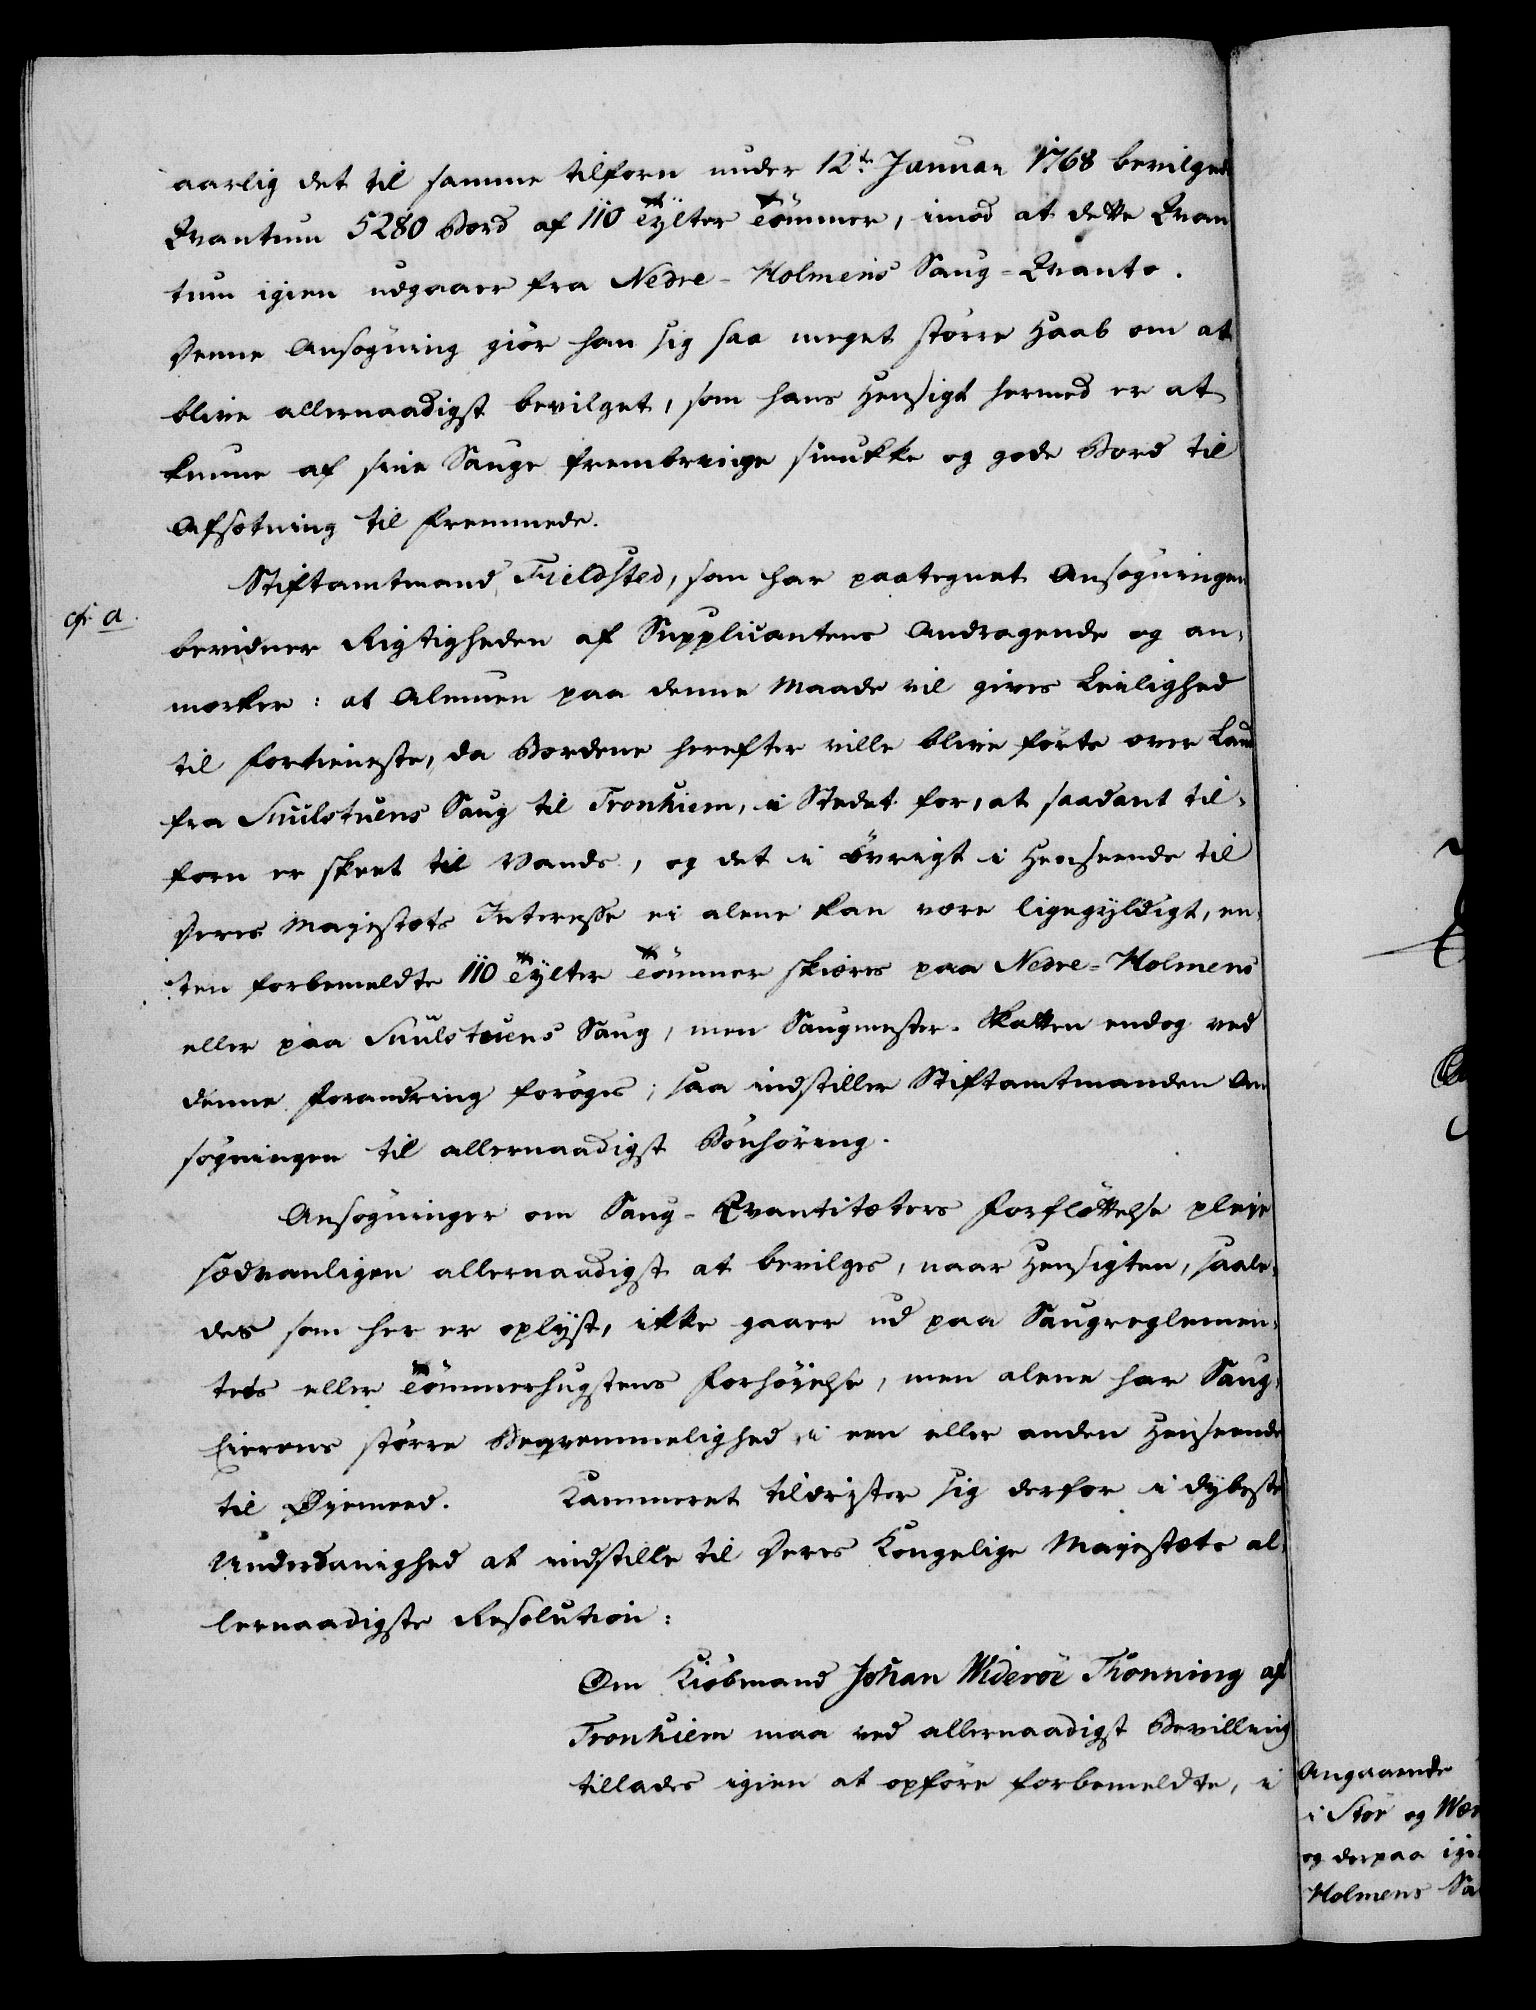 aarlig det til samme tilforn under 12te Januar 1768 bevilgede
Qvantum 5280 Bord af 110 Tylter Tömmer, imod at dette Qvan
tum igien udgaaer fra Nedre-Holmens Saug-Qvanto.
Denne Ansøgning giör han sig saa meget större Haab om at
blive allernaadigst bevilget, som hans Hensigt hermed er at
kunne af sine Sauge frembringe smukke og gode Bord til
Afsætning til Fremmede.
Stiftamtmand Fieldsted, som har paategnet Ansøgningen
cfr a.
bevidner Rigtigheden af Supplicantens Andragende og an-
mærker: at Almuen paa denne Maade vil gives Leilighed
til Fortieneste, da Bordene herefter ville blive förte over Land
fra Suulstuens Saug til Tronhiem, i Stedet for, at saadant til-
forn er skeet til Vands, og det i övrigt i Henseende til
Deres Majestæts Interesse ei alene kan være ligegyldigt, en-
ten forbemeldte 110 Tylter Tömmer skiæres paa Nedre-Holmens
eller paa Suulstuens Saug, men Saugmester-Skatten endog ved
denne Forandring forøges; saa indstiller Stiftamtmanden An
søgningen til allernaadigst Bönhöring.
Ansøgninger om Saug-Qvantitæters Forflöttelse pleie
sædvanligen allernaadigst at bevilges, naar Hensigten, saale-
des som her er oplyst, ikke gaaer ud paa Saugreglemen-
tets eller Tömmerhugstens Forhöyelse, men alene har Saug-
Eierens större Beqvemmelighed i een eller anden Henseende
til Øjemeed. Kammeret tildrister sig derfor i dybeste
Underdanighed at indstille til Deres Kongelige Majestæts al-
lernaadigste Resolution:
Om Kiöbmand Johan Wideröe Thonning af
Tronhiem maa ved allernaadigst Bevilling
tillades igien at opföre forbemeldte, i
Angaaende
i Stör og Wær
og derpaa igi
Holmens Sa